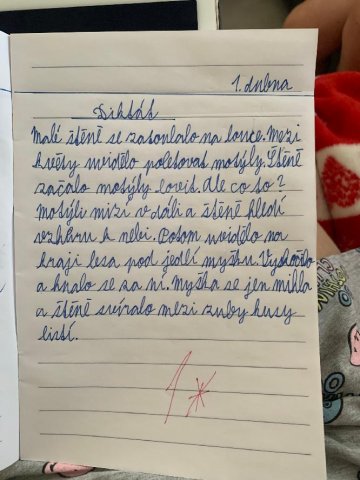 1. dubna
Diktát
Malé štěně se zatoulalo na louce. Mezi
květy uvidělo poletovat motýly. Štěně
začalo motýly lovit. Ale co to?
Motýli mizí v dáli a štěně hledí
vzhůru k nebi. Potom uvidělo na
kraji lesa pod jedlí myšku. Vyskočilo
a hnalo se za ní. Myška se jen mihla
a štěně svíralo mezi zuby kusy
listí.
1*